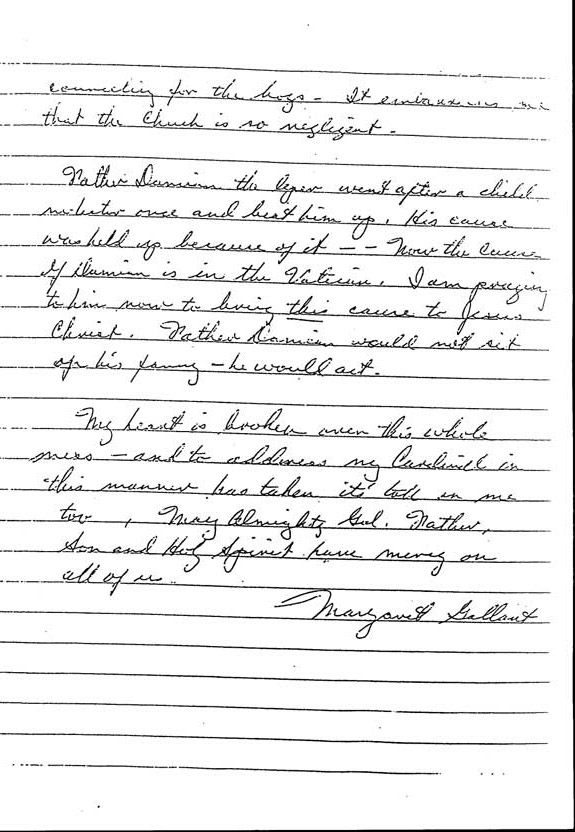 counseling for the boys - It embarrasses me
that the Church is so negligent.
Father Damien the leper went after a child
molester once and beat him up. His cause
was held up because of it -- Now the Cause
of Damien is in the Vatican. I am praying
to him now to bring this cause to Jesus
Christ. Father Damien would not sit
on his fanny - he would act.
My heart is broken over this whole
mess - and to address my Cardinal in
this manner has taken it's toll on me
too, May Almighty God. Father,
Son and Holy Spirit have mercy on
all of us.
Margaret Gallant